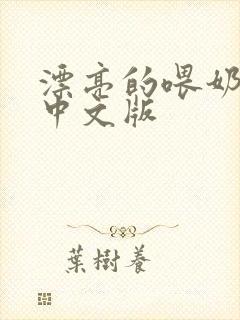 漂亮的喂奶
中文版
葉樹養